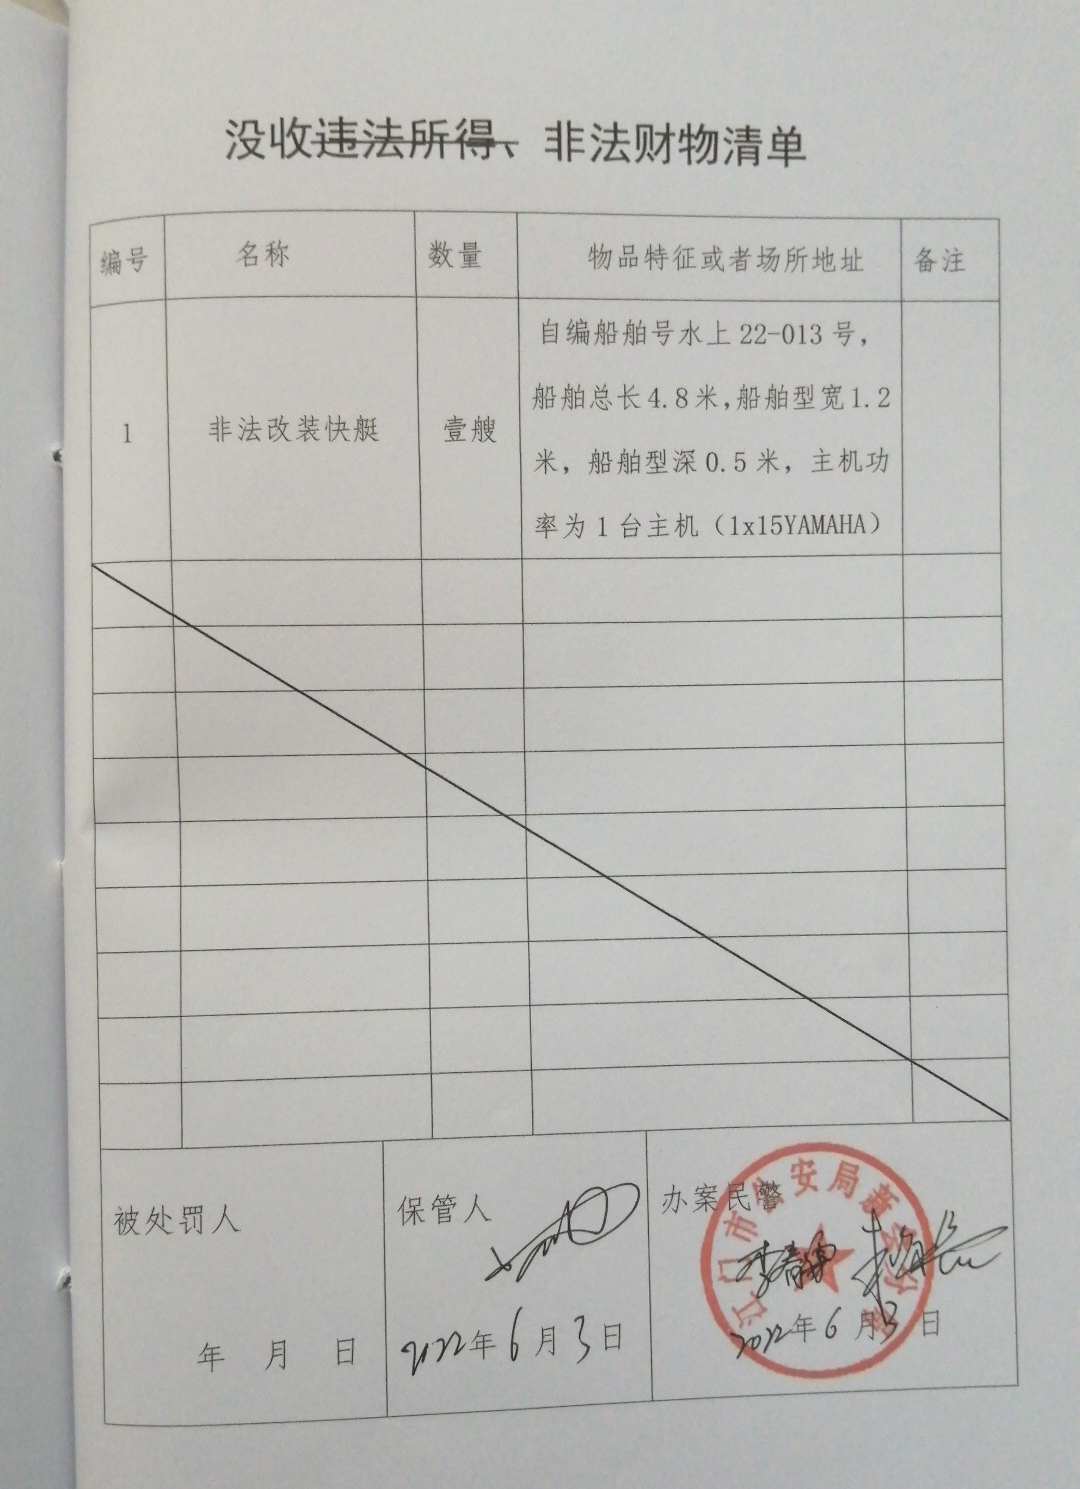 没收违法所得、非法财物清单
编号 名称 数量 物品特征或者场所地址 备注
1 非法改装快艇 壹艘 自编船舶号水上22-013号，
船舶总长4.8米，船舶型宽1.2
米，船舶型深0.5米，主机功
率为1台主机（1x15YAMAHA）
被处罚人
年 月 日
保管人
2022年6月3日
办案民警
江门市公安局新会分局
2022年6月3日